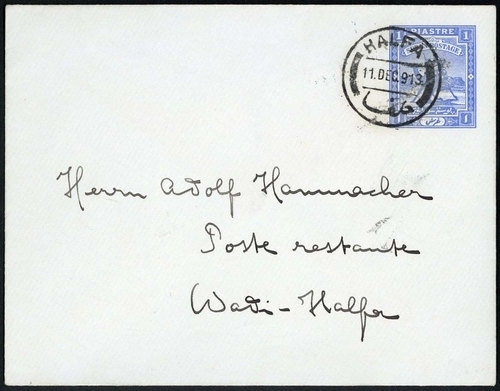 1 PIASTRE 1
POSTAGE
HALFA
11.DEC.913
حلفا
1 1
Herrn Adolf Hammacher
Poste restante
Wadi-Halfa